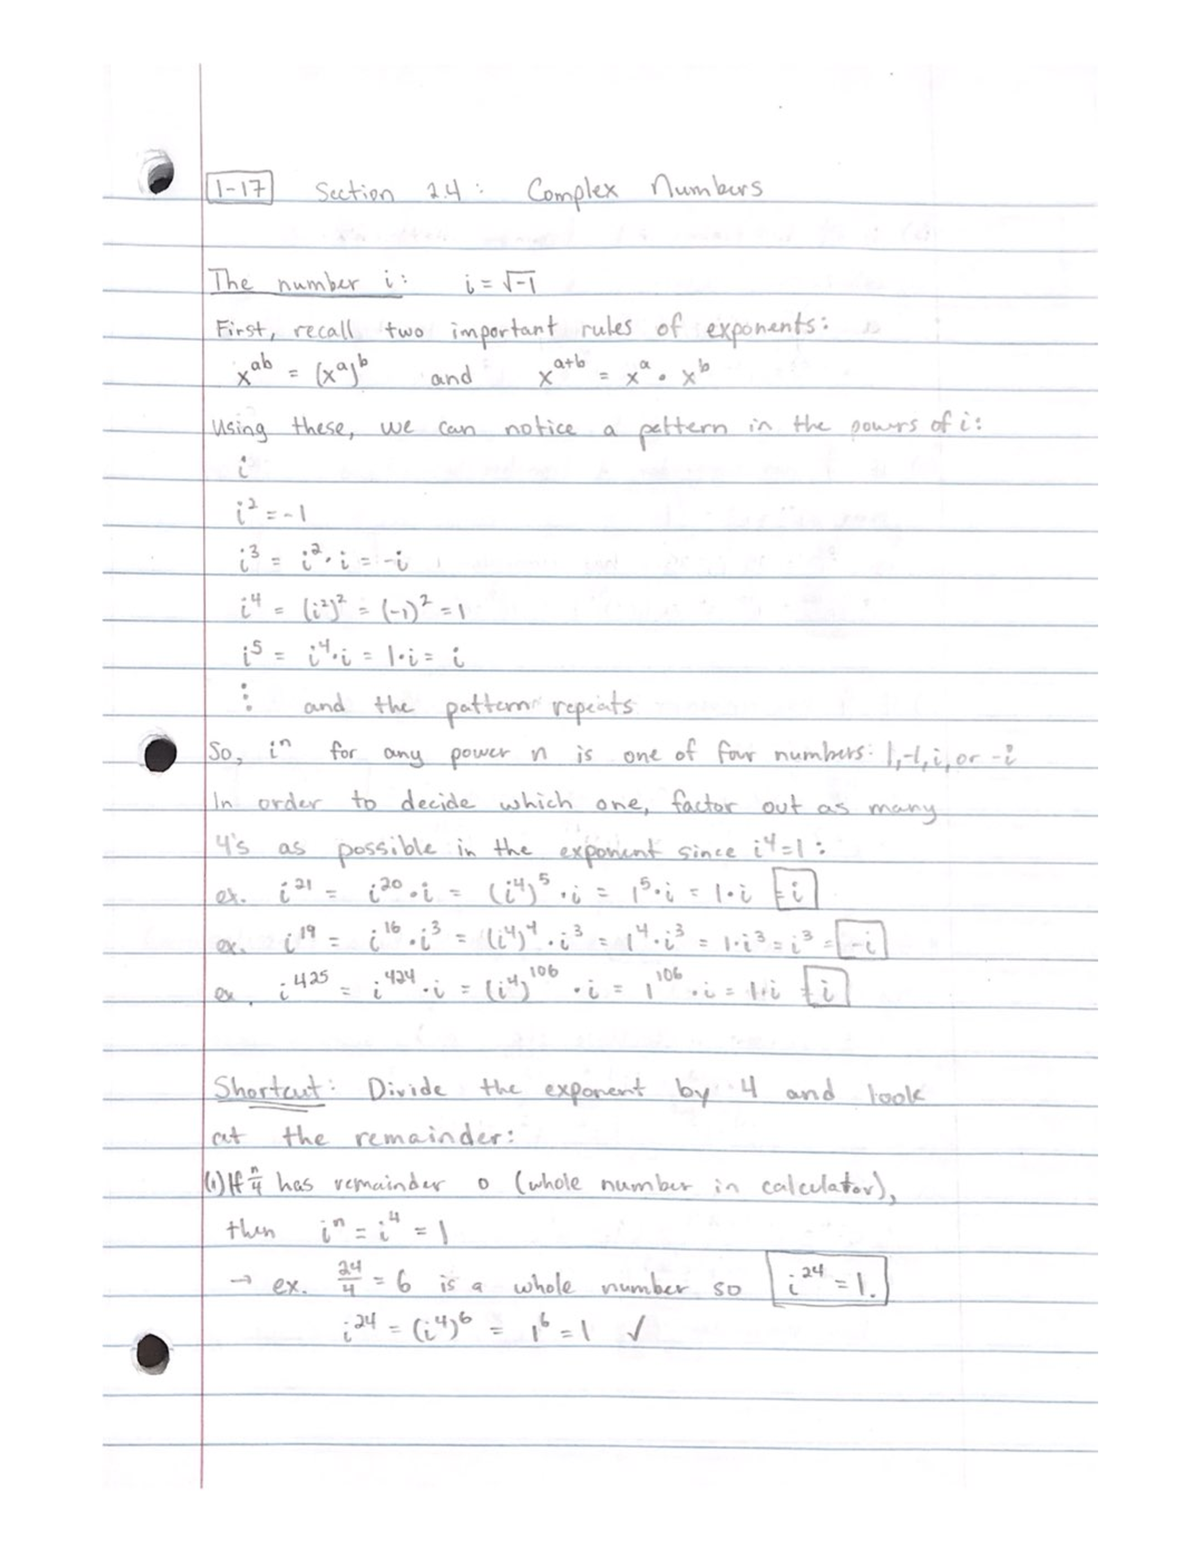 1-17 Section 2.4: Complex Numbers
The number i: i = √-1
First, recall two important rules of exponents:
x^ab = (x^a)^b and x^a+b = x^a • x^b
Using these, we can notice a pattern in the powers of i:
i
i² = -1
i³ = i²·i = -i
i⁴ = (i²)² = (-1)² = 1
i⁵ = i⁴·i = 1·i = i
⋮ and the pattern repeats
So, iⁿ for any power n is one of four numbers: 1,-1,i, or -i
In order to decide which one, factor out as many
4's as possible in the exponent since i⁴=1:
ex. i²¹ = i²⁰·i = (i⁴)⁵·i = 1⁵·i = 1·i = i
ex. i¹⁹ = i¹⁶·i³ = (i⁴)⁴·i³ = 1⁴·i³ = 1·i³ = i³ = -i
ex. i⁴²⁵ = i⁴²⁴·i = (i⁴)¹⁰⁶·i = 1¹⁰⁶·i = 1·i = i
Shortcut: Divide the exponent by 4 and look
at the remainder:
(1) If n/4 has remainder 0 (whole number in calculator),
then iⁿ = i⁴ = 1
→ ex. 24/4 = 6 is a whole number so i²⁴ = 1.
i²⁴ = (i⁴)⁶ = 1⁶ = 1 ✓